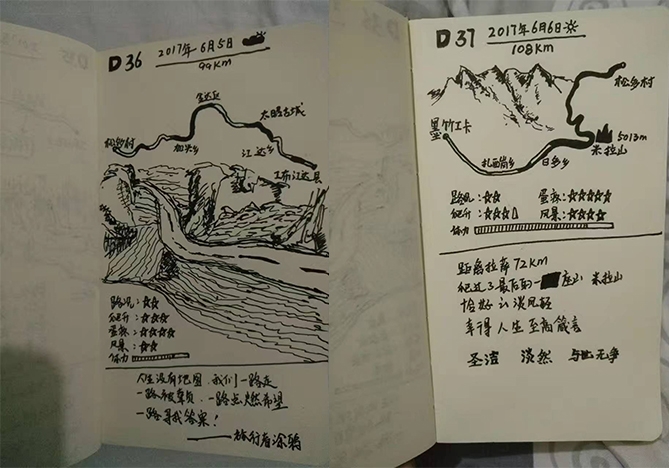 D36 2017年6月5日
99KM
金达丘
太昭古城
松多村
加兴乡
江达乡
工布江达县
路况：☆☆
爬升：☆☆☆☆
蛋疼：☆☆☆☆
风景：☆☆
体力
人生没有地图 我们一路走
一路被辜负，一路点燃希望
一路寻找答案！
——旅行者涂鸦
D37 2017年6月6日
108KM
松多村
墨竹工卡
5013m
米拉山
扎西岗乡
日多乡
路况：☆☆
蛋疼：☆☆☆☆☆
爬升：☆☆☆
风景：☆☆☆☆
体力
距离拉萨72KM
爬过了最后的一座山 米拉山
恰好 云淡风轻
幸得人生至高箴言
圣洁 淡然 与世无争